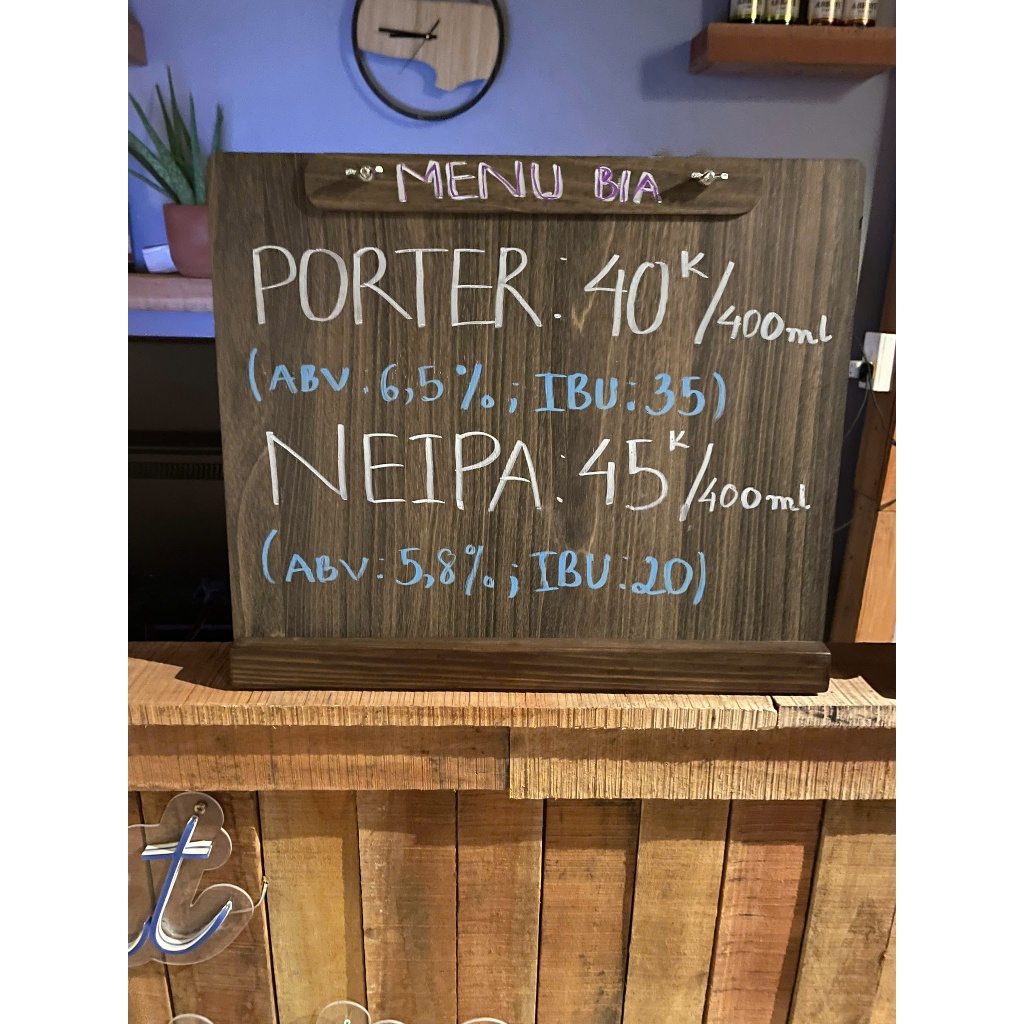 MENU BIA
PORTER: 40K/400ml
(ABV: 6,5%; IBU: 35)
NEIPA: 45K/400ml
(ABV: 5,8%; IBU: 20)
t